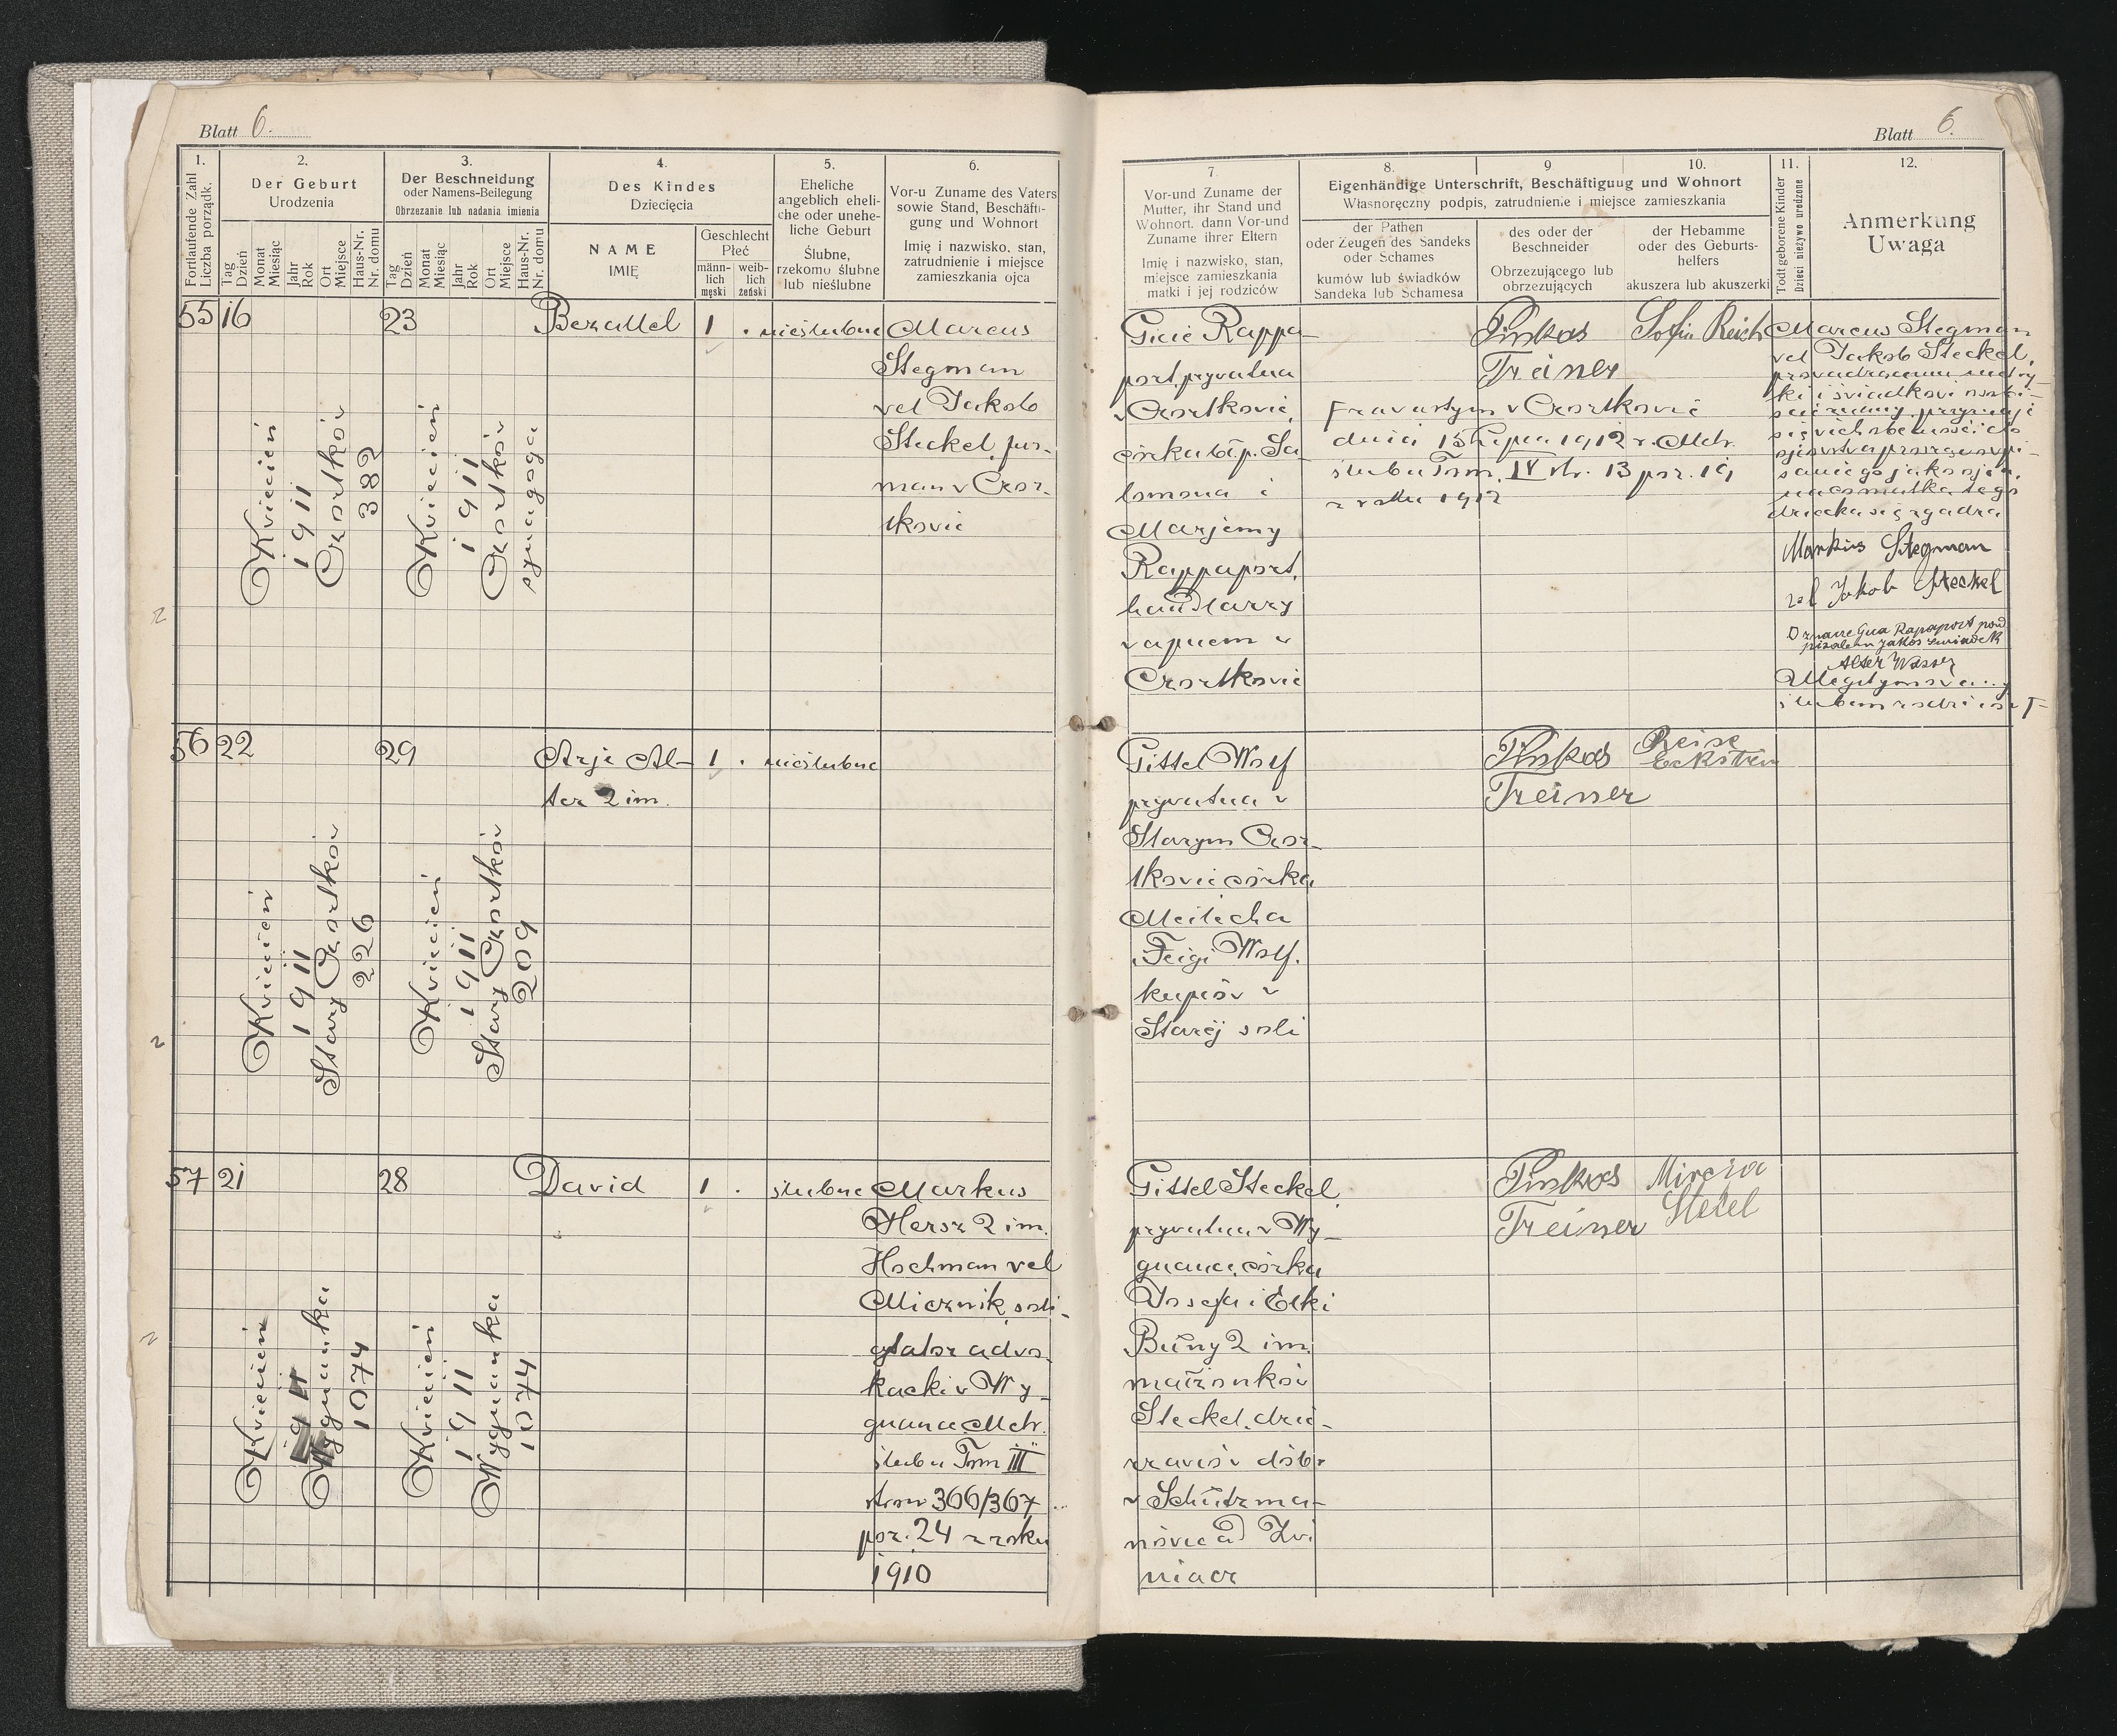 Blatt 6.
1.
Fortlaufende Zahl
Liczba porządk.
2.
Der Geburt
Urodzenia
Tag
Dzień
Monat
Miesiąc
Jahr
Rok
Ort
Miejsce
Haus-Nr.
Nr. domu
3.
Der Beschneidung
oder Namens-Beilegung
Obrzezanie lub nadania imienia
Tag
Dzień
Monat
Miesiąc
Jahr
Rok
Ort
Miejsce
Haus-Nr.
Nr. domu
4.
Des Kindes
Dziecięcia
NAME
IMIĘ
Geschlecht
Płeć
männ-
lich
męski
weib-
lich
żeński
5.
Eheliche
angeblich eheli-
che oder unehe-
liche Geburt
Ślubne,
rzekomo ślubne
lub nieślubne
6.
Vor-u Zuname des Vaters
sowie Stand, Beschäfti-
gung und Wohnort
Imię i nazwisko, stan,
zatrudnienie i miejsce
zamieszkania ojca
55
16
Kwiecień
1911
Czortków
382
23
Kwiecień
1911
Czortków
synagoga
Bezallel
1
nieślubne
Marcus
Stegman
vel Jakob
Steckel, fur-
man w Czor-
tkowie
56
22
Kwiecień
1911
Stary Czortków
226
29
Kwiecień
1911
Stary Czortków
209
Arje Al-
ter 2 im.
1
nieślubne
57
21
Kwiecień
1911
Wygnanka
1074
28
Kwiecień
1911
Wygnanka
1074
David
1
ślubne
Markus
Hersz 2 im.
Hochman vel
Micznik, soli-
cytator adwo-
kacki w Wy-
gnance Metr.
ślubu Tom III
stron 366/367
poz. 24 z roku
1910
Blatt 6.
7.
Vor-und Zuname der
Mutter, ihr Stand und
Wohnort. dann Vor-und
Zuname ihrer Eltern
Imię i nazwisko, stan,
miejsce zamieszkania
matki i jej rodziców
8.
9
10.
Eigenhändige Unterschrift, Beschäftiguug und Wohnort
Własnoręczny podpis, zatrudnienie i miejsce zamieszkania
der Pathen
oder Zeugen des Sandeks
oder Schames
kumów lub świadków
Sandeka lub Schamesa
des oder der
Beschneider
Obrzezującego lub
obrzezujących
der Hebamme
oder des Geburts-
helfers
akuszera lub akuszerki
11.
Todt geborene Kinder
Dzieci nieżywo urodzone
12.
Anmerkung
Uwaga
Gicie Rappa-
port, prywatna
w Czortkowie,
córka bł. p. Sa-
lomona i
Marjemy
Rappaport,
handlarzy
wapnem w
Czortkowie
Pinkas
Treiner
Sofie Reich
zawartym w Czortkowie
dnia 15 lipca 1912 r. Metr.
ślubu Tom. IV str. 13 poz. 19
z roku 1912
Marcus Stegman
vel Jakob Steckel,
prowadzącemu metry-
ki i świadkom osobi-
ście znany, przyznaje
się w ich obecności do
ojcostwa
jako ojca,
na co matka tego
dziecka się zgadza
Markus Stegman
vel Jakob Steckel
Rapaport pod
pisałem jako świadek
Alter Wasser
ślubem rodziców
Gittel Wolf
prywatna w
Starym Czor-
tkowie, córka
Meilecha
i Feigi Wolf.
kupców w
Starej soli
Pinkas
Treiner
Reise
Eckstein
Gittel Steckel
prywatna w Wy-
gnance, córka
Josefa i Elki
Buny 2 im.
małżonków
Steckel, dzie-
rzawców dóbr
w Schützma-
nówce ad Zwi-
niacz
Pinkas
Treiner
Mirejza
Stekel